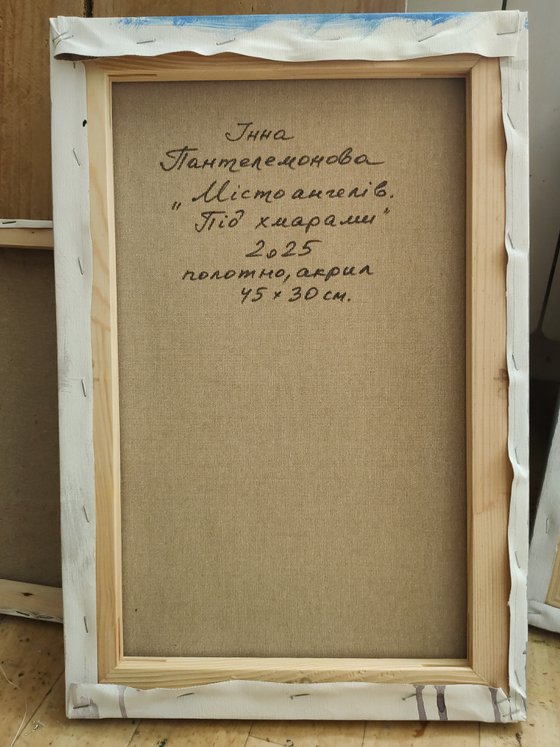 Інна
Пантелемонова
„Місто ангелів.
Під хмарами"
2025
полотно, акрил
45 × 30 см.